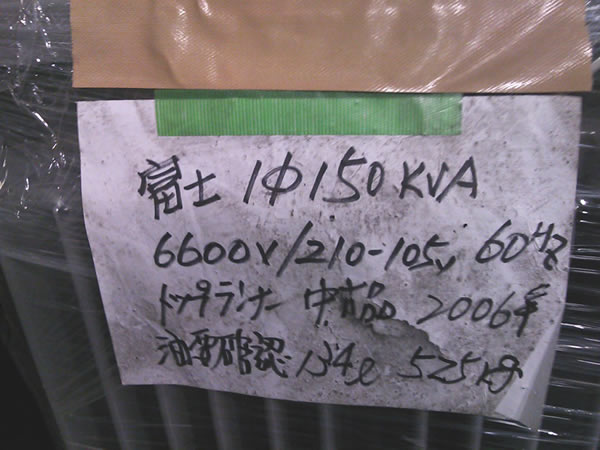 富士 1Φ150KVA
6600V/210-105V 60Hz
トップランナー 中古品 2006年
油要確認 134ℓ 525kg